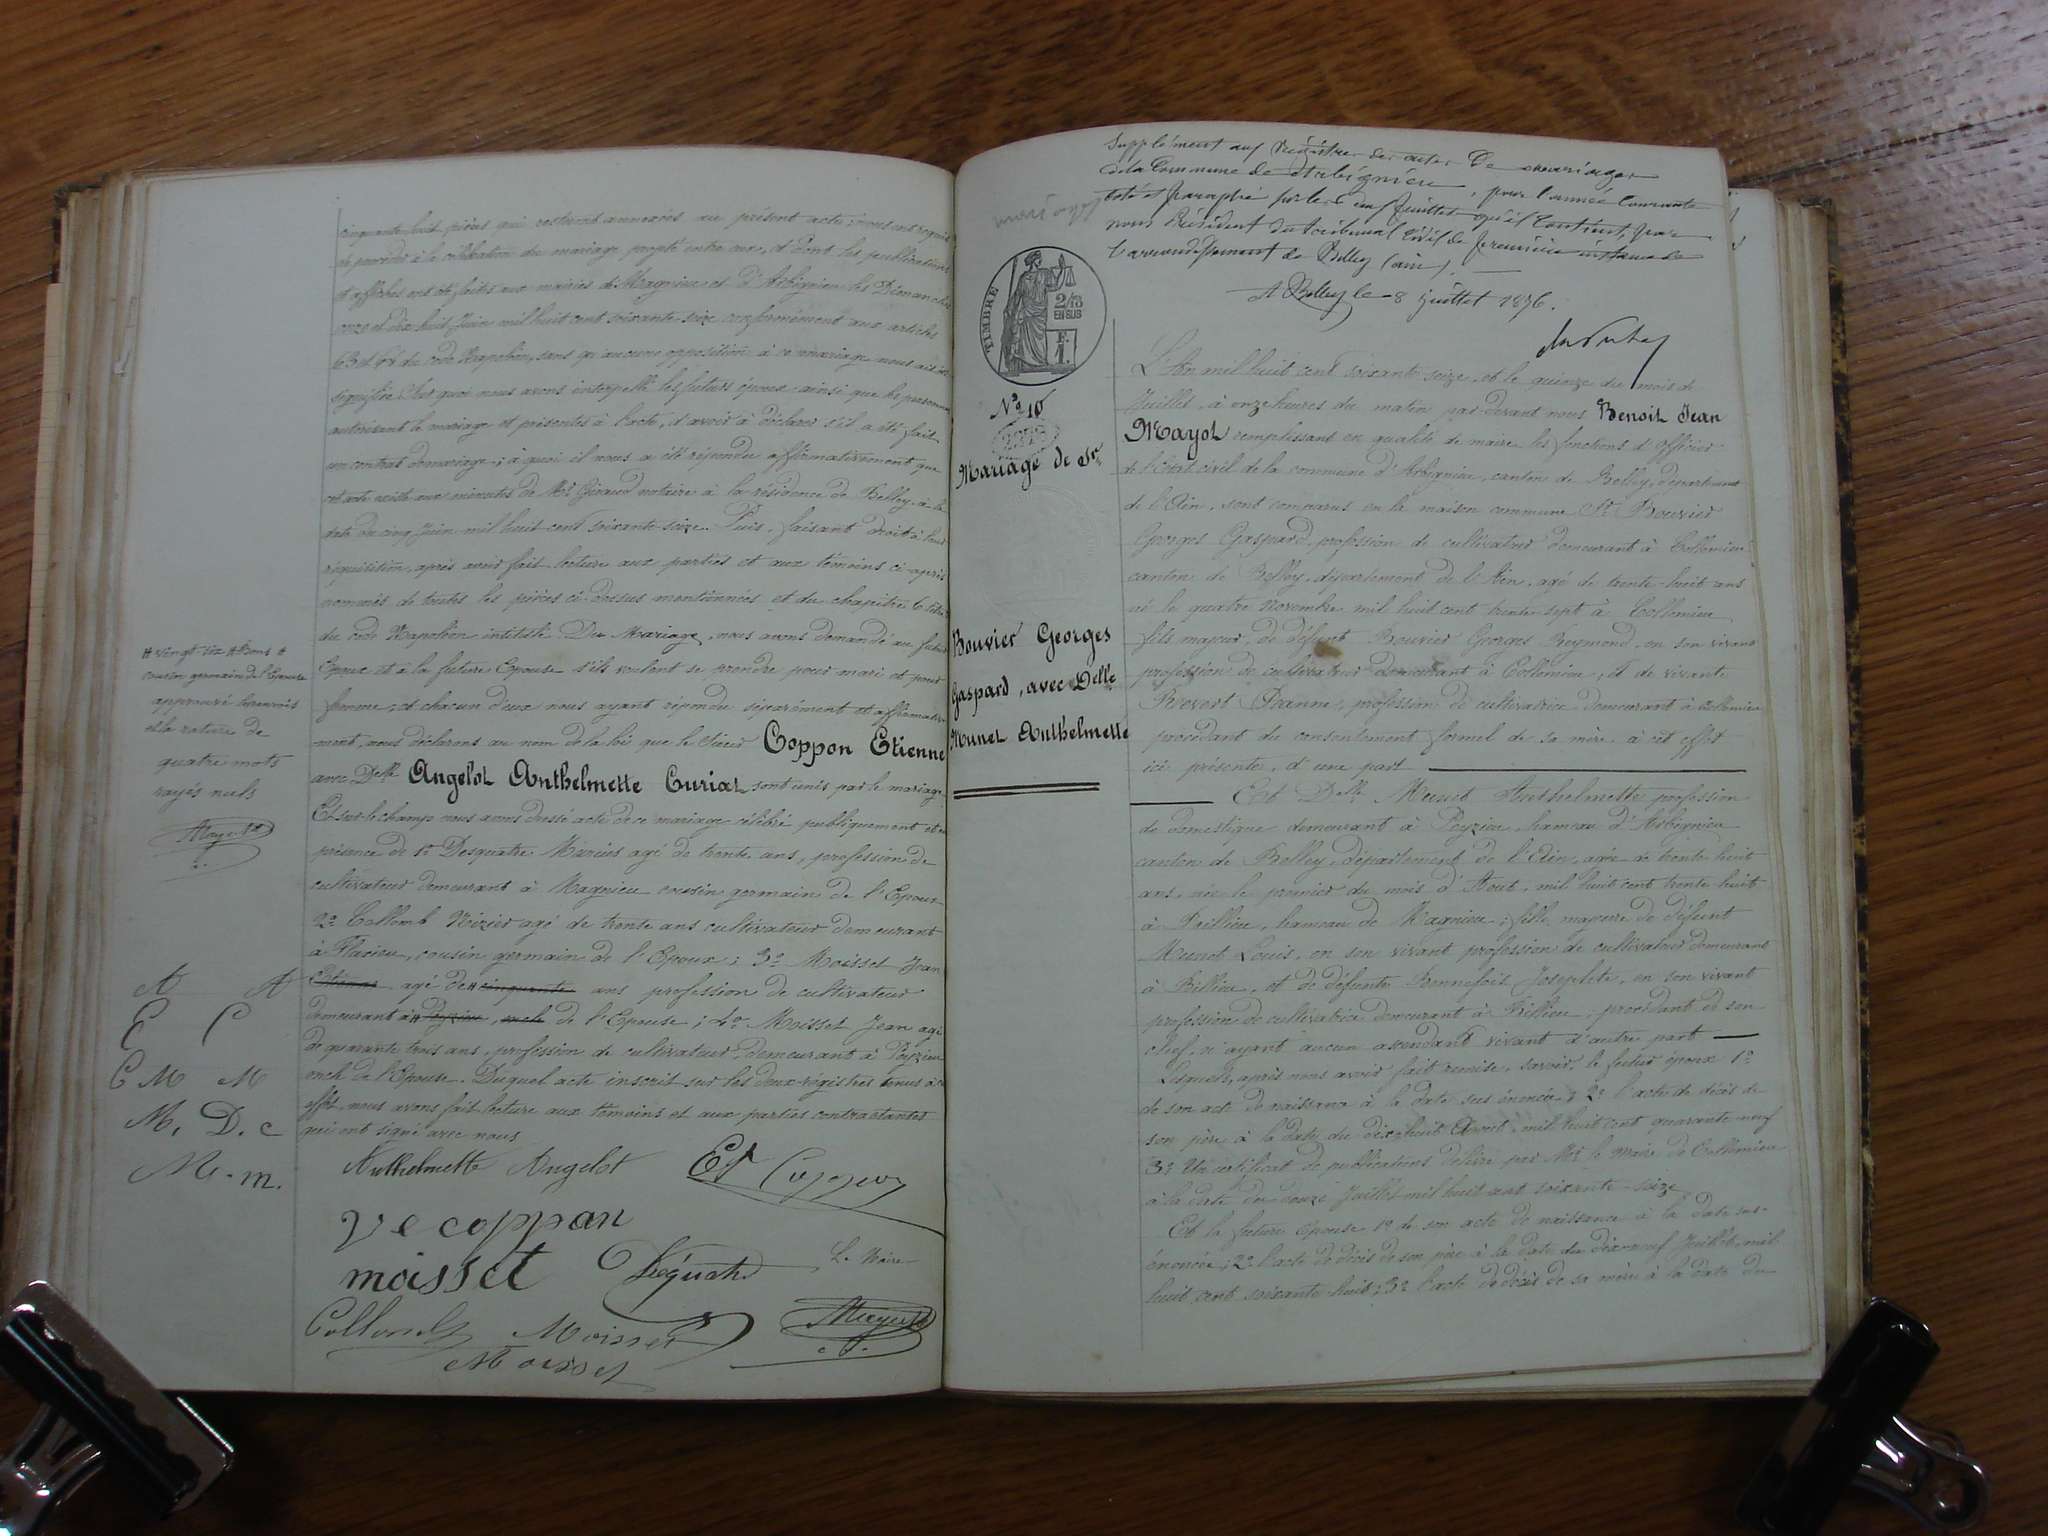 cinquante huit pièces qui resteront annexées au présent acte; nous ont requis
de procéder à la célébration du mariage projeté entre eux, et dont les publications
et affiches ont été faites aux mairies de Magnieu et d'Arbignieu les Dimanches
onze et dix huit Juin mil huit cent soixante seize conformément aux articles
63 et 64 du code Napoléon, sans qu'aucune opposition à ce mariage nous ait été
signifiée. Sur quoi nous avons interpellé les futurs époux ainsi que les personnes
autorisant le mariage et présentes à l'acte, d'avoir à déclarer s'il a été fait
un contrat de mariage; à quoi il nous a été répondu affirmativement que
cet acte existe aux minutes de Me Giraud notaire à la résidence de Belley, à la
date du cinq Juin mil huit cent soixante-seize. Puis, faisant droit à leur
réquisition, après avoir fait lecture aux parties et aux témoins ci-après
nommés de toutes les pièces ci-dessus mentionnées et du chapitre 6
du code Napoléon intitulé Du Mariage, nous avons demandé au futur
Epoux et à la future Epouse s'ils veulent se prendre pour mari et pour
femme, et chacun d'eux nous ayant répondu séparément et affirmative-
ment, nous déclarons au nom de la loi que le Sieur Coppon Etienne
avec Delle Angelot Anthelmette Curiat sont unis par le mariage.
Et sur-le-champ nous avons dressé acte de ce mariage célébré publiquement et en
présence de 1° Desquatre Marius agé de trente ans, profession de
cultivateur demeurant à Magnieu cousin germain de l'Epoux
2° Collomb Nizier agé de trente ans cultivateur demeurant
à Flaxieu, cousin germain de l'Epoux; 3° Moisset Jean
Etienne agé de # cinquante ans profession de cultivateur
demeurant à # Peyzieu, oncle de l'Epouse; 4° Moisset Jean agé
de quarante trois ans, profession de cultivateur demeurant à Peyzieu
oncle de l'Epouse. Duquel acte inscrit sur les deux régistres tenus à cet
effet, nous avons fait lecture aux témoins et aux parties contractantes
qui ont signé avec nous
# vingt six # Bons #
cousin germain de l'Epouse
approuvé les renvois
et la rature de
quatre mots
rayés nuls
A A
E C
C M M
M. D. c
M. m.
Anthelmette Angelot Et Coppon
Ve coppan
moisset Déquatre Le Maire
Collomb Moisset Mayot
Moisset
Supplément aux Régistres des actes de mariages
de la Commune de Arbignieu, pour l'année Courante
coté et paraphé par nous
nous Président du tribunal Civil de première instance de
l'arrondissement de Belley (ain).
A Belley le 8 juillet 1876.
TIMBRE
2/10
EN SUS
N° 10
Mariage de Sr
Bouvier Georges
Gaspard, avec Delle
Munet Anthelmette
L'An mil huit cent soixante seize, et le quinze du mois de
Juillet, à onze heures du matin par-devant nous Benoit Jean
Mayot remplissant en qualité de maire les fonctions d'Officier
de l'Etat civil de la commune d'Arbignieu, canton de Belley, département
de l'Ain, sont comparus en la maison commune Sr Bouvier
Georges Gaspard, profession de cultivateur demeurant à Collomieu
canton de Belley, département de l'Ain, agé de trente-huit ans
né le quatre Novembre mil huit cent trente sept à Collomieu
fils majeur de défunt Bouvier Georges Reymond, en son vivant
profession de cultivateur demeurant à Collomieu, et de vivante
Brevert Jeanne, profession de cultivatrice demeurant à Collomieu
procédant du consentement formel de sa mère à cet effet
ici présente, d'une part
Et Delle Munet Anthelmette profession
de domestique demeurant à Peyzieu, hameau d'Arbignieu
canton de Belley, département de l'Ain, agée de trente huit
ans, née le premier du mois d'Aout, mil huit cent trente huit
à Billieu, hameau de Magnieu; fille majeure de défunt
Munet Louis, en son vivant profession de cultivateur demeurant
à Billieu, et de défunte Bonnefois Josephte, en son vivant
profession de cultivatrice demeurant à Billieu; procédant de son
chef, n'ayant aucun ascendant vivant d'autre part
Lesquels, après nous avoir fait remise, savoir, le futur époux 1°
de son acte de naissance à la date sus énoncée; 2° l'acte de décès de
son père à la date du dix-huit Avril mil huit cent quarante neuf
3° Un certificat de publications délivré par Mr le Maire de Collomieu
à la date du douze Juillet mil huit cent soixante-seize
Et la future épouse 1° de son acte de naissance à la date sus-
énoncée; 2° l'acte de décès de son père à la date du dix neuf Juillet mil
huit cent soixante huit; 3° l'acte de décès de sa mère à la date du